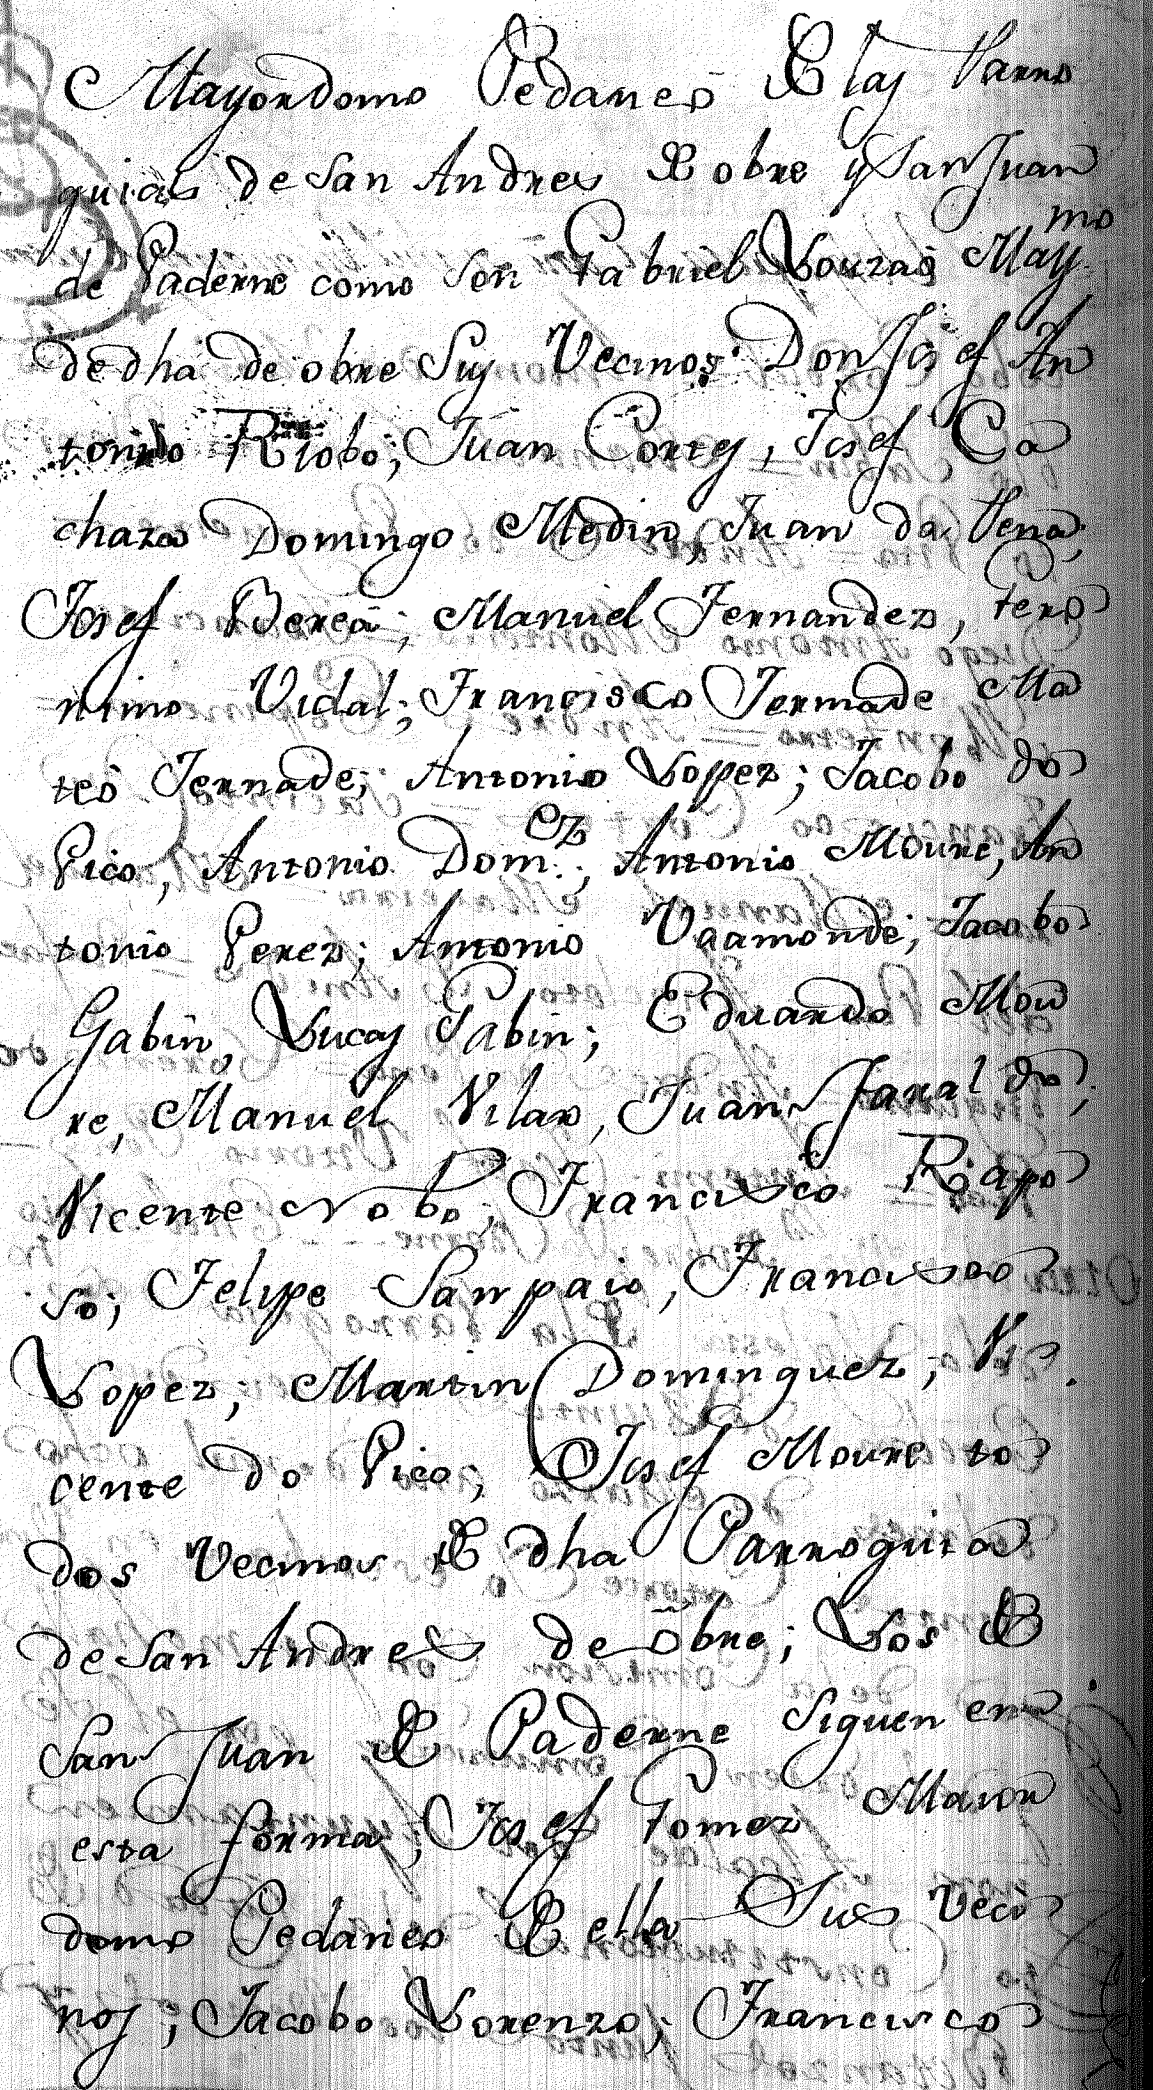 Mayordomo Pedaneo de las Parro
quias de San Andres de obre y San Juan
de Paderne como son Gabriel Louzao May.mo
de dha de obre Sus Vecinos Don Josef An
tonio Riobo; Juan Cortes, Josef Ca
chaza Domingo Medin, Juan da Vena,
Josef Berea; Manuel Fernandez, Gero
nimo Vidal; Francisco Fernade Ma
teo Fernade; Antonio Lopez; Jacobo do
Pico, Antonio Dom.ez; Antonio Moure, An
tonio Perez; Antonio Vaamonde; Jacobo
Gabin, Lucas Gabin; Eduardo Mou
re, Manuel Vilar, Juan Faraldo,
Vicente Nobo; Francisco Rapo
so; Felipe Sampaio, Francisco
Lopez; Martin Dominguez; Vi
cente do Pico; Josef Moure to
dos Vecinos de dha Parroquia
de San Andres de obre; Los de
San Juan de Paderne Siguen en
esta forma; Josef Gomez Maior
domo Pedaneo de ella Sus Veci
nos; Jacobo Lorenzo; Francisco